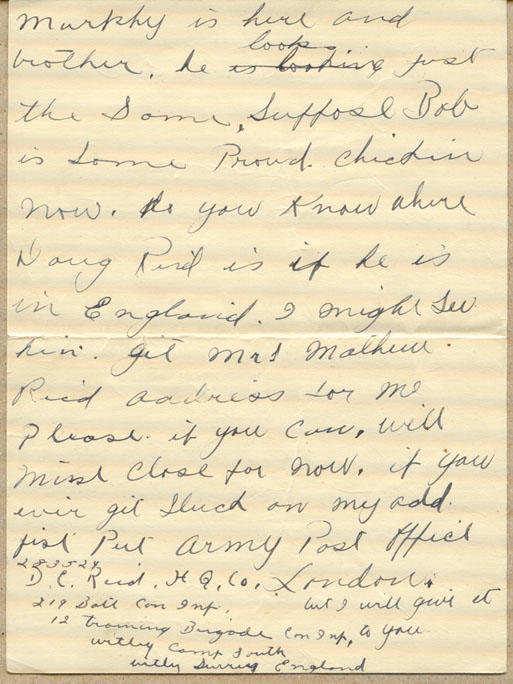 Murphy is here and
brother. he is looking looks just
the Same, Suppose Bob
is Some Proud. Chickin
now. do you Know where
Doug Reid is if he is
in England. I might See
him. git Mrs Mathew.
Reid address for me
Please. if you Can, will
Must Close for now. if you
ever git Stuck on my add.
jist Put Army Post Office
London.
283524
D. C. Reid. H Q. Co.
but I will give it
219 Batt Can Inf.
to you
12 training Brigade Can Inf,
witley Camp South
witly Surrey England